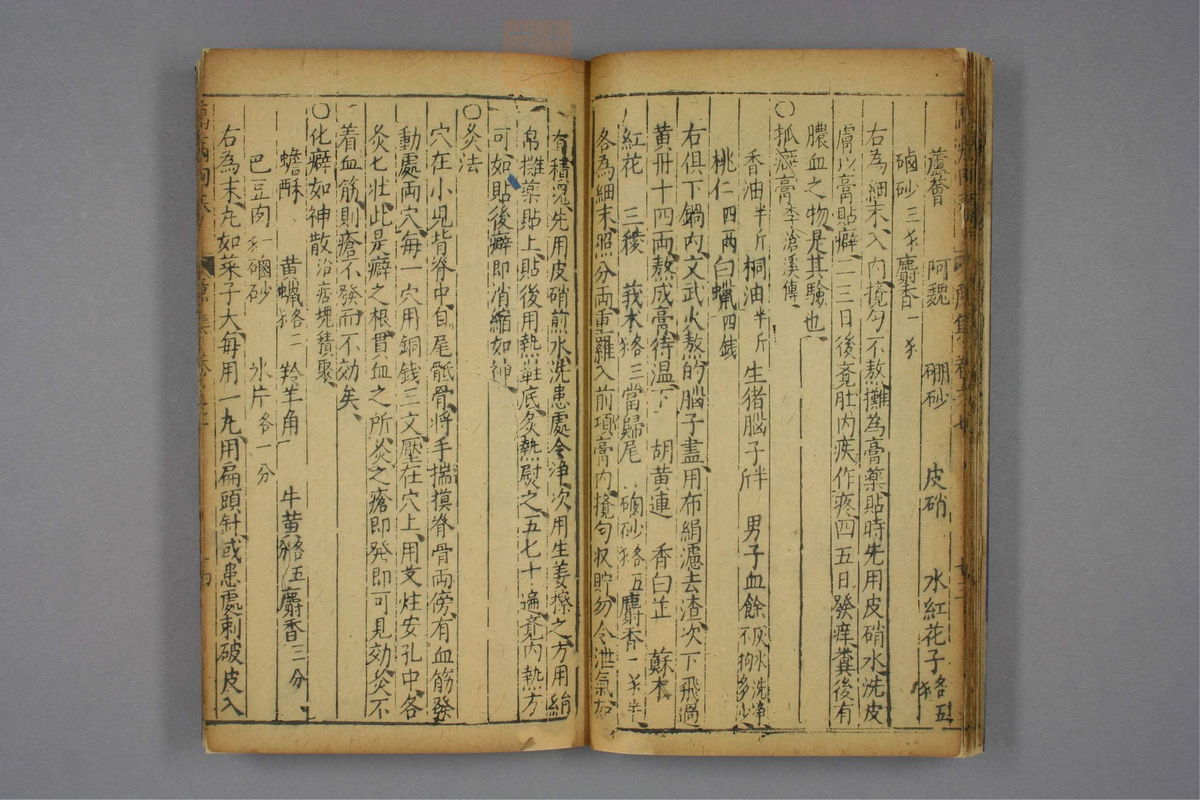 蘆薈 阿魏 硼砂 皮硝 水紅花子各五
硇砂三 麝香一
右為細末入內攪勻不熬攤為膏藥貼時先用皮硝水洗皮
膚以膏貼癖二三日後覺肚內疾作疼四五日發痒糞後有
膿血之物是其驗也
○抓癖膏李滄溪傳
香油半斤 桐油半斤 生猪腦子半斤 男子血餘灰水洗淨不拘多少
桃仁四兩 白蠟四錢
右俱下鍋內文武火熬的腦子盡用布絹濾去渣次下飛過
黃丹十四兩熬成膏待溫下 胡黃連 香白芷 蘇木
紅花 三稜 莪朮各三 當歸尾 硇砂各五 麝香一 半
各為細末照分兩重羅入前項膏內攪勻収貯勿令泄氣如
有積塊先用皮硝煎水洗患處令淨次用生姜擦之方用絹
帛攤藥貼上貼後用熱鞋底炙熱熨之五七十遍覺內熱方
可如貼後癖即消縮如神
○灸法
穴在小兒背脊中自尾骶骨將手揣摸脊骨兩傍有血筋發
動處両穴每一穴用銅錢三文壓在穴上用艾炷安孔中各
灸七壯此是癖之根貫血之所灸之瘡即發即可見効灸不
着血筋則瘡不發而不効矣
○化癖如神散治痞塊積聚
蟾酥 黃蠟各二 羚羊角一 牛黃各五 麝香三分
巴豆肉 硇砂 氷片各一分
右為末丸如菜子大每用一丸用扁頭針或患處刺破皮入